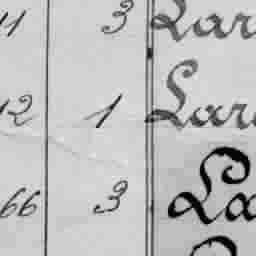 11 3 Lar
12 1 Lar
66 3 La